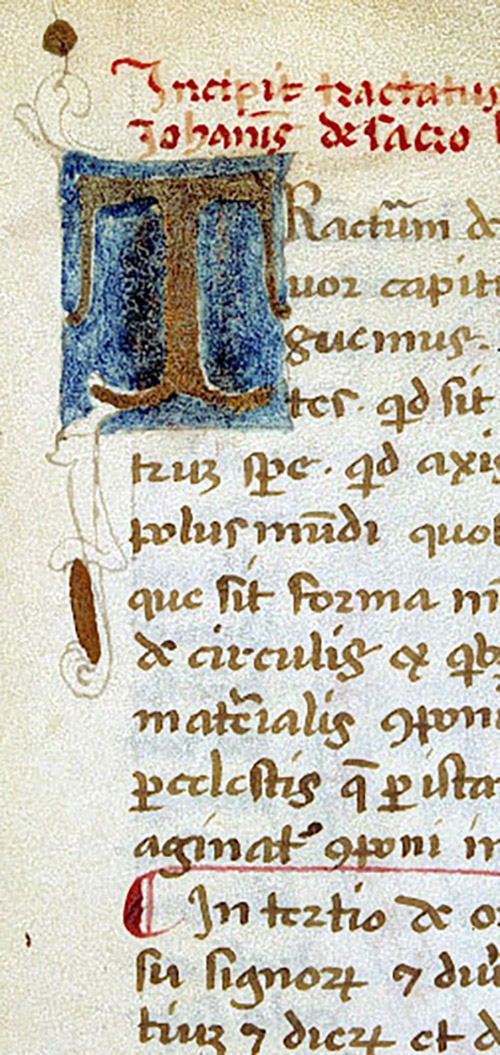 Incipit tractatus
Johanis̄ de sacro
TRactūm de
uor capit
guemus.
tes. qd sit
truꝫ spe. qd axis
polus mūdi quot
que sit forma m
de circulis ex qb
mat̄ialis ꝯponi
ꝑcelestis q̄ ꝑ ista
aginat᷒ ꝯponi in
In tertio de o
su signoꝝ ⁊ diu
tiuꝫ ⁊ dieꝝ et d